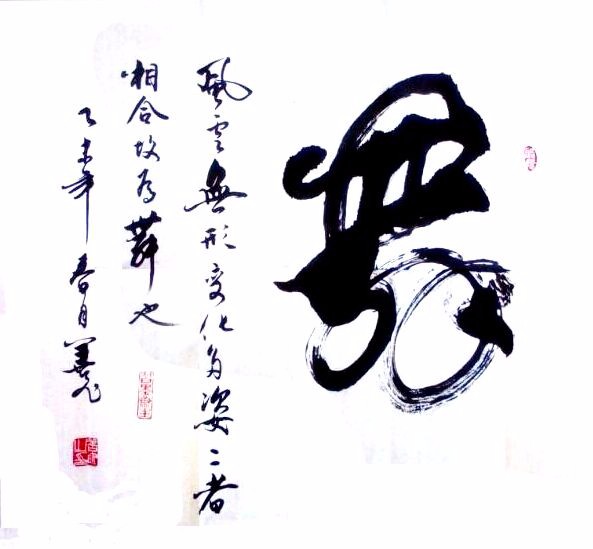 舞
風雲無形变化多姿二者
相合故为舞也
乙未年春月